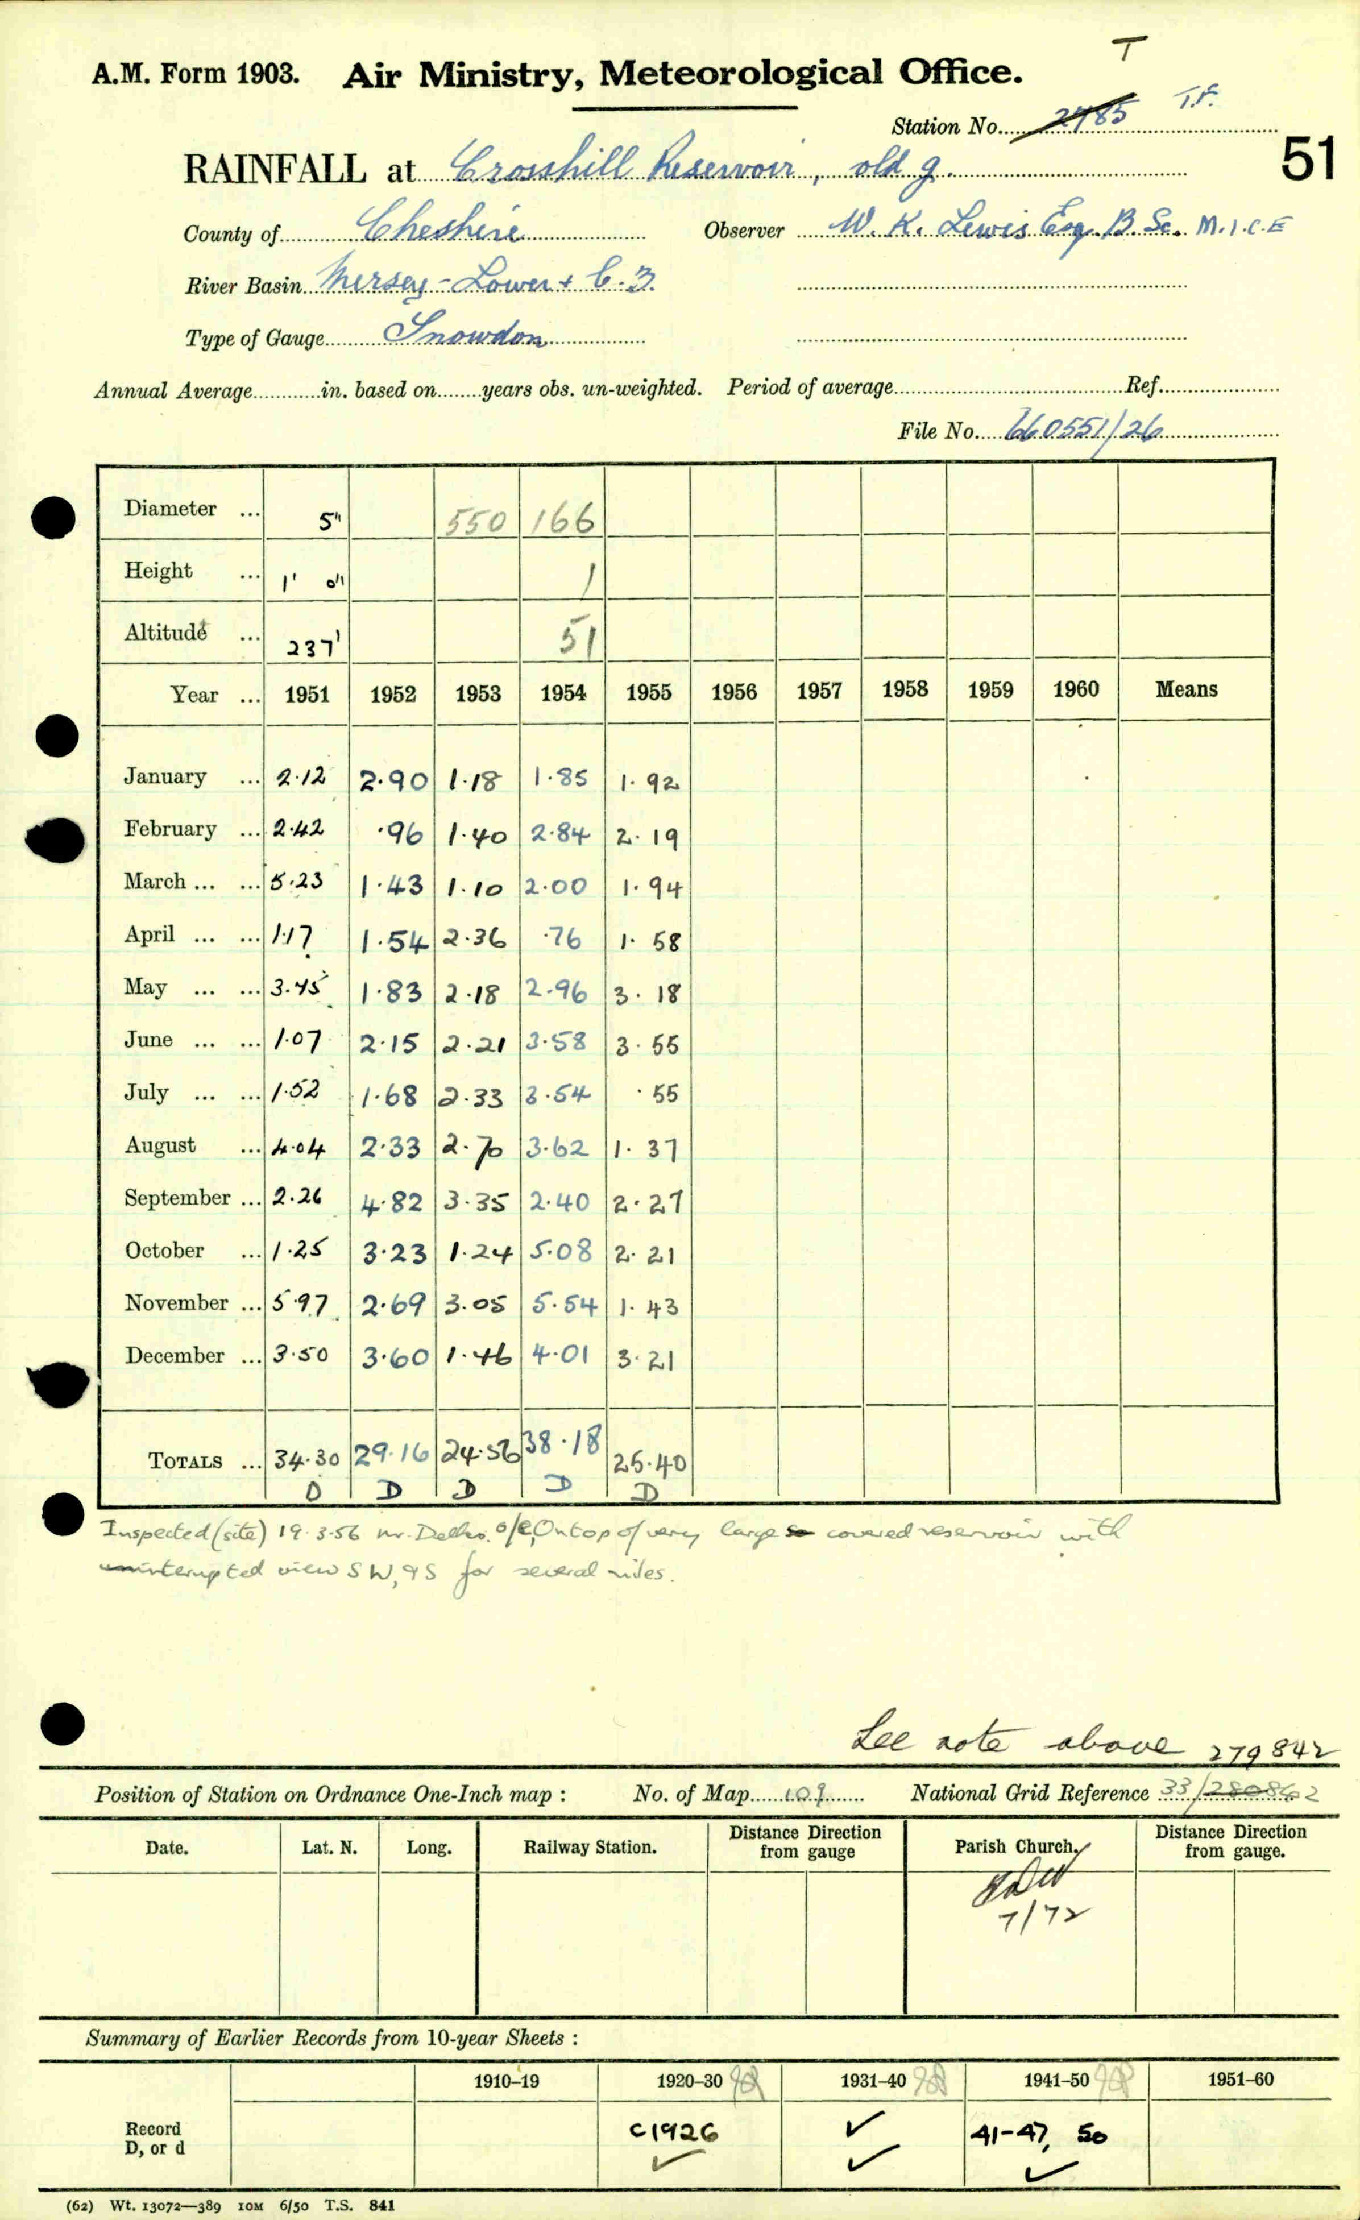 T
A.M. Form 1903. Air Ministry, Meteorological Office.
Station No. 2785 T.F.
RAINFALL at Crosshill Reservoir, old g. 51
County of Cheshire Observer W. K. Lewis Esq. B Sc. M.I.C.E
River Basin Mersey - Lower + C.3.
Type of Gauge Snowdon
Annual Average in. based on years obs. un-weighted. Period of average Ref.
File No. 660551/26
Diameter ... 5" 550 166
Height ... 1' 0" 1
Altitude ... 237' 51
Year ... 1951 1952 1953 1954 1955 1956 1957 1958 1959 1960 Means
January ... 2.12 2.90 1.18 1.85 1.92
February ... 2.42 .96 1.40 2.84 2.19
March ... ... 5.23 1.43 1.10 2.00 1.94
April ... ... 1.17 1.54 2.36 .76 1.58
May ... ... 3.45 1.83 2.18 2.96 3.18
June ... ... 1.07 2.15 2.21 3.58 3.55
July ... ... 1.52 1.68 2.33 3.54 .55
August ... 4.04 2.33 2.70 3.62 1.37
September ... 2.26 4.82 3.35 2.40 2.27
October ... 1.25 3.23 1.24 5.08 2.21
November ... 5.97 2.69 3.05 5.54 1.43
December ... 3.50 3.60 1.46 4.01 3.21
TOTALS ... 34.30 29.16 24.56 38.18 25.40
D D D D D
Inspected (site) 19.3.56 On top of very large covered reservoir with
uninterupted view SW, & S for several miles.
See note above 279842
Position of Station on Ordnance One-Inch map : No. of Map 109 National Grid Reference 33/280862
Date. Lat. N. Long. Railway Station. Distance from Direction gauge Parish Church. Distance from Direction gauge.
7/72
Summary of Earlier Records from 10-year Sheets :
1910–19 1920–30 1931–40 1941–50 1951–60
Record D, or d c1926 ✓ ✓ ✓ 41-47, 50 ✓
(62) Wt. 13072—389 10M 6/50 T.S. 841